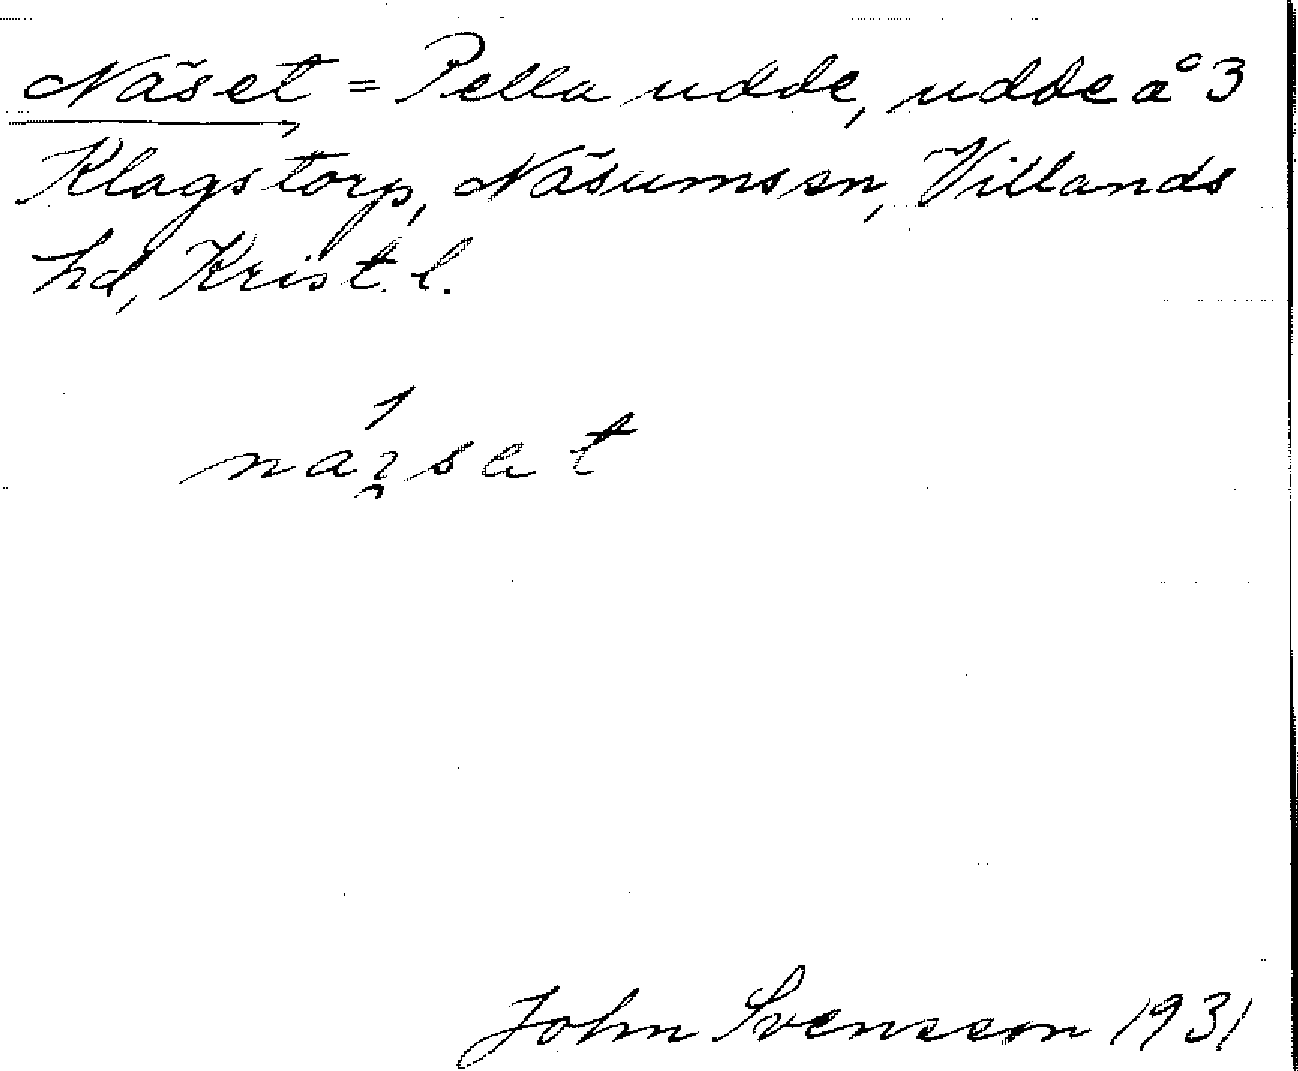 Näset = Pella udde, udde å 3
Klagstorp, Näsums sn, Villands
hd, Krist. l.
John Svensson 1931